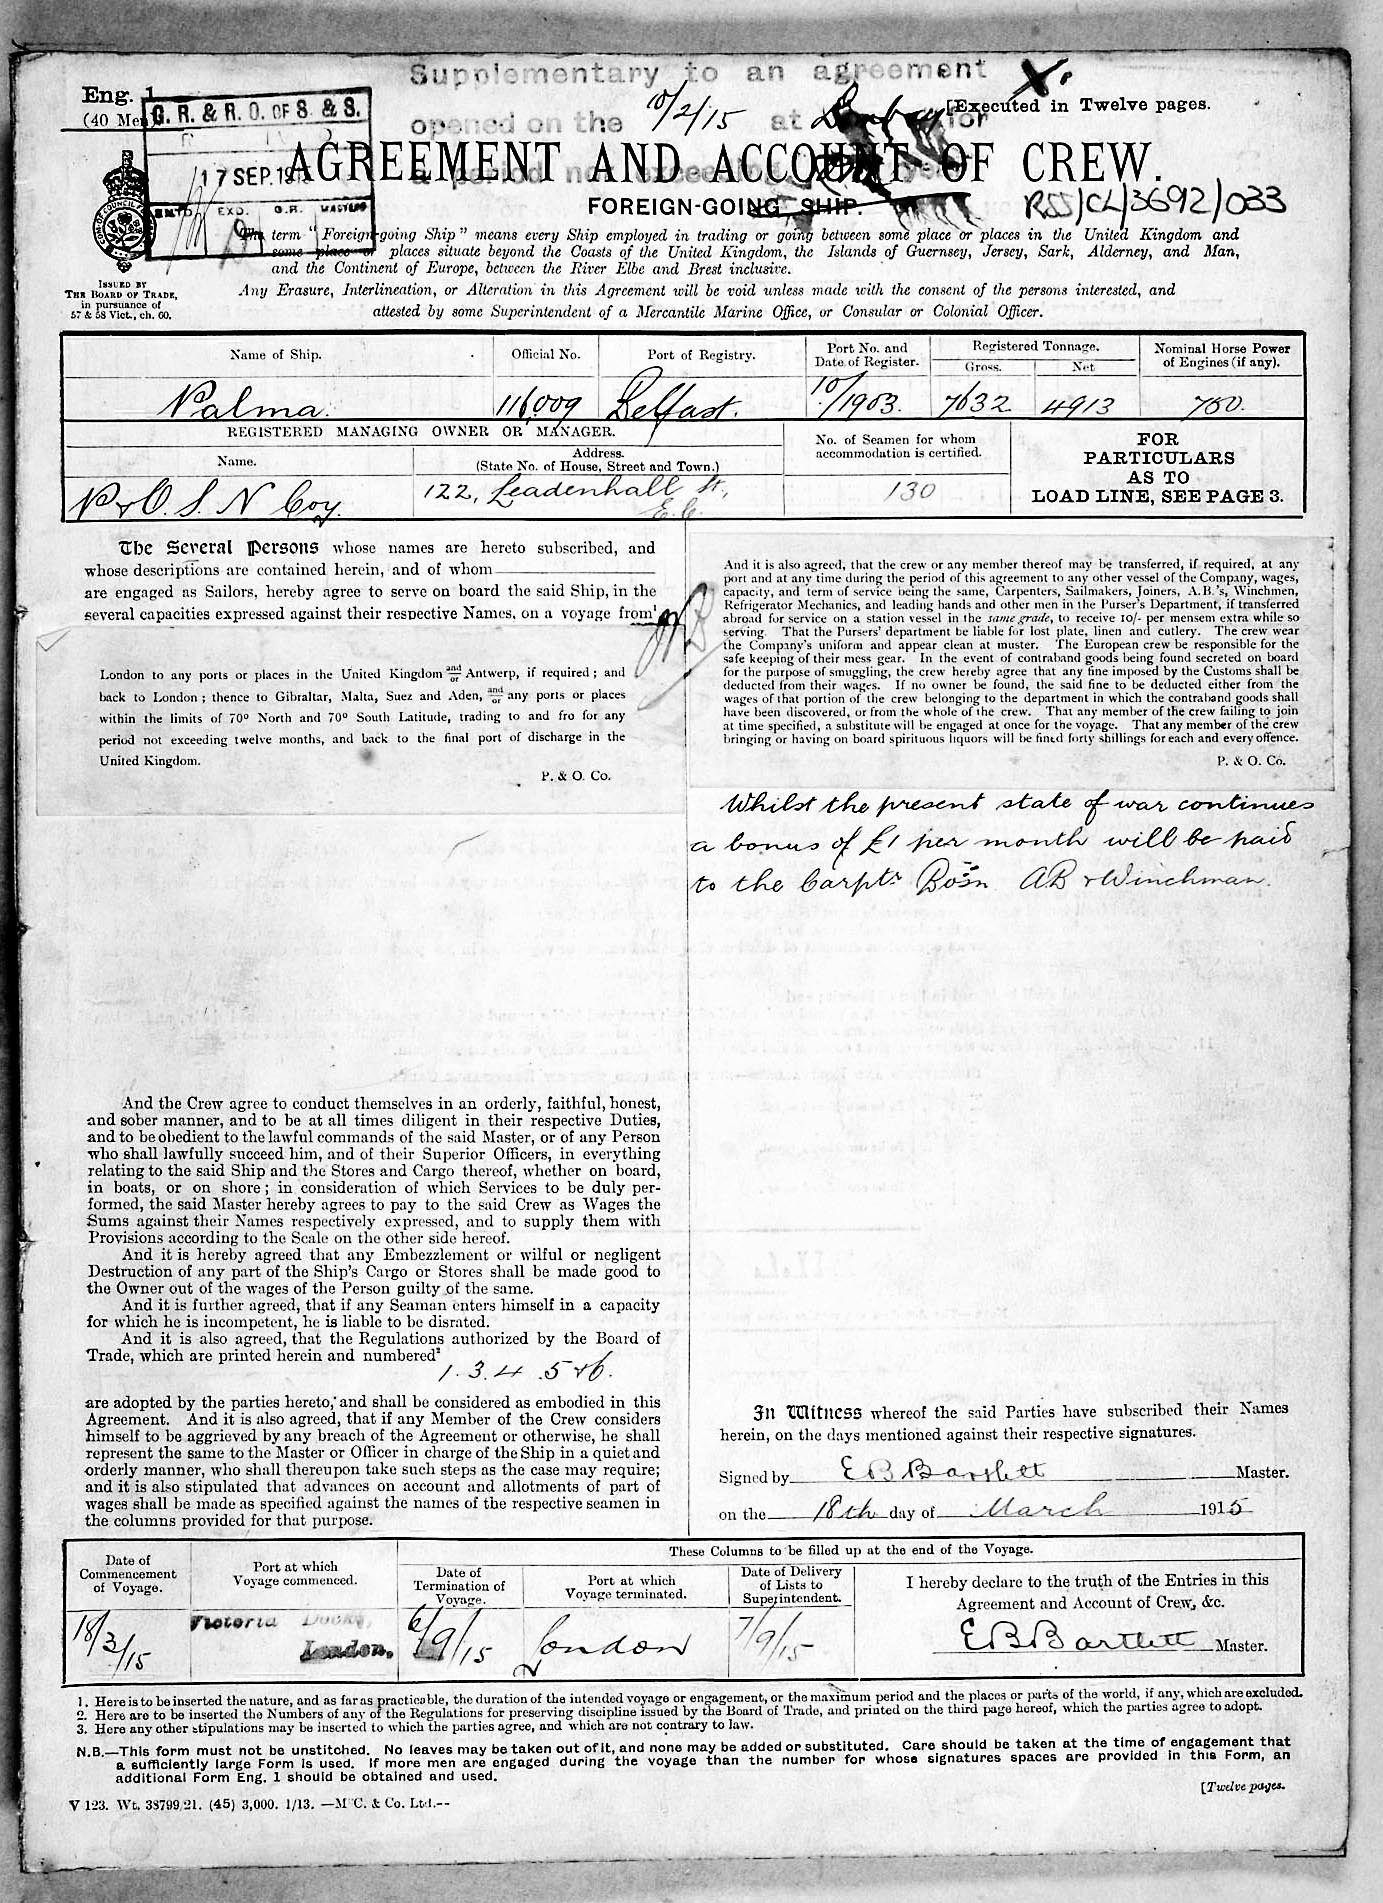 Supplementary to an agreement
Eng. 1
(40 Men)
[Executed in Twelve pages.
opened on the 10/2/15 at Bombay for
G. R. & R. O. OF S. & S.
17 SEP. 191
EXD. G.R.
AGREEMENT AND ACCOUNT OF CREW.
a period not exceeding
FOREIGN-GOING SHIP.
RSS/CL/3692/033
The term "Foreign-going Ship" means every Ship employed in trading or going between some place or places in the United Kingdom and
some place or places situate beyond the Coasts of the United Kingdom, the Islands of Guernsey, Jersey, Sark, Alderney, and Man,
and the Continent of Europe, between the River Elbe and Brest inclusive.
ISSUED BY
THE BOARD OF TRADE,
in pursuance of
57 & 58 Vict., ch. 60.
Any Erasure, Interlineation, or Alteration in this Agreement will be void unless made with the consent of the persons interested, and
attested by some Superintendent of a Mercantile Marine Office, or Consular or Colonial Officer.
Name of Ship. Official No. Port of Registry. Port No. and Date of Register. Registered Tonnage. Gross. Net Nominal Horse Power of Engines (if any).
Palma. 116,009 Belfast. 10/1903. 7632 4913 750.
REGISTERED MANAGING OWNER OR MANAGER.
Name. Address. (State No. of House, Street and Town.)
No. of Seamen for whom
accommodation is certified.
P & O. S. N Coy. 122, Leadenhall St,
E.C.
130
FOR
PARTICULARS
AS TO
LOAD LINE, SEE PAGE 3.
The Several Persons whose names are hereto subscribed, and
whose descriptions are contained herein, and of whom
are engaged as Sailors, hereby agree to serve on board the said Ship, in the
several capacities expressed against their respective Names, on a voyage from¹
London to any ports or places in the United Kingdom and/or Antwerp, if required; and
back to London; thence to Gibraltar, Malta, Suez and Aden, and/or any ports or places
within the limits of 70° North and 70° South Latitude, trading to and fro for any
period not exceeding twelve months, and back to the final port of discharge in the
United Kingdom.
P. & O. Co.
And it is also agreed, that the crew or any member thereof may be transferred, if required, at any
port and at any time during the period of this agreement to any other vessel of the Company, wages,
capacity, and term of service being the same, Carpenters, Sailmakers, Joiners, A.B.'s, Winchmen,
Refrigerator Mechanics, and leading hands and other men in the Purser's Department, if transferred
abroad for service on a station vessel in the same grade, to receive 10/- per mensem extra while so
serving. That the Pursers' department be liable for lost plate, linen and cutlery. The crew wear
the Company's uniform and appear clean at muster. The European crew be responsible for the
safe keeping of their mess gear. In the event of contraband goods being found secreted on board
for the purpose of smuggling, the crew hereby agree that any fine imposed by the Customs shall be
deducted from their wages. If no owner be found, the said fine to be deducted either from the
wages of that portion of the crew belonging to the department in which the contraband goods shall
have been discovered, or from the whole of the crew. That any member of the crew failing to join
at time specified, a substitute will be engaged at once for the voyage. That any member of the crew
bringing or having on board spirituous liquors will be fined forty shillings for each and every offence.
P. & O. Co.
Whilst the present state of war continues
a bonus of £1 per month will be paid
to the Carptr Bosn AB & Winchman.
And the Crew agree to conduct themselves in an orderly, faithful, honest,
and sober manner, and to be at all times diligent in their respective Duties,
and to be obedient to the lawful commands of the said Master, or of any Person
who shall lawfully succeed him, and of their Superior Officers, in everything
relating to the said Ship and the Stores and Cargo thereof, whether on board,
in boats, or on shore; in consideration of which Services to be duly per-
formed, the said Master hereby agrees to pay to the said Crew as Wages the
Sums against their Names respectively expressed, and to supply them with
Provisions according to the Scale on the other side hereof.
And it is hereby agreed that any Embezzlement or wilful or negligent
Destruction of any part of the Ship's Cargo or Stores shall be made good to
the Owner out of the wages of the Person guilty of the same.
And it is further agreed, that if any Seaman enters himself in a capacity
for which he is incompetent, he is liable to be disrated.
And it is also agreed, that the Regulations authorized by the Board of
Trade, which are printed herein and numbered²
1. 3. 4 .5 & 6.
are adopted by the parties hereto, and shall be considered as embodied in this
Agreement. And it is also agreed, that if any Member of the Crew considers
himself to be aggrieved by any breach of the Agreement or otherwise, he shall
represent the same to the Master or Officer in charge of the Ship in a quiet and
orderly manner, who shall thereupon take such steps as the case may require;
and it is also stipulated that advances on account and allotments of part of
wages shall be made as specified against the names of the respective seamen in
the columns provided for that purpose.
In Witness whereof the said Parties have subscribed their Names
herein, on the days mentioned against their respective signatures.
Signed by E B Bartlett Master.
on the 18th day of March 1915
Date of Commencement of Voyage. Port at which Voyage commenced. These Columns to be filled up at the end of the Voyage.
Date of Termination of Voyage. Port at which Voyage terminated. Date of Delivery of Lists to Superintendent.
I hereby declare to the truth of the Entries in this
Agreement and Account of Crew, &c.
18/3/15 Victoria Docks, London. 6/9/15 London 7/9/15 E B Bartlett Master.
1. Here is to be inserted the nature, and as far as practicable, the duration of the intended voyage or engagement, or the maximum period and the places or parts of the world, if any, which are excluded.
2. Here are to be inserted the Numbers of any of the Regulations for preserving discipline issued by the Board of Trade, and printed on the third page hereof, which the parties agree to adopt.
3. Here any other stipulations may be inserted to which the parties agree, and which are not contrary to law.
N.B.—This form must not be unstitched. No leaves may be taken out of it, and none may be added or substituted. Care should be taken at the time of engagement that
a sufficiently large Form is used. If more men are engaged during the voyage than the number for whose signatures spaces are provided in this Form, an
additional Form Eng. 1 should be obtained and used.
[Twelve pages.
V 123. Wt. 38799/21. (45) 3,000. 1/13. —M'C. & Co. Ltd.--